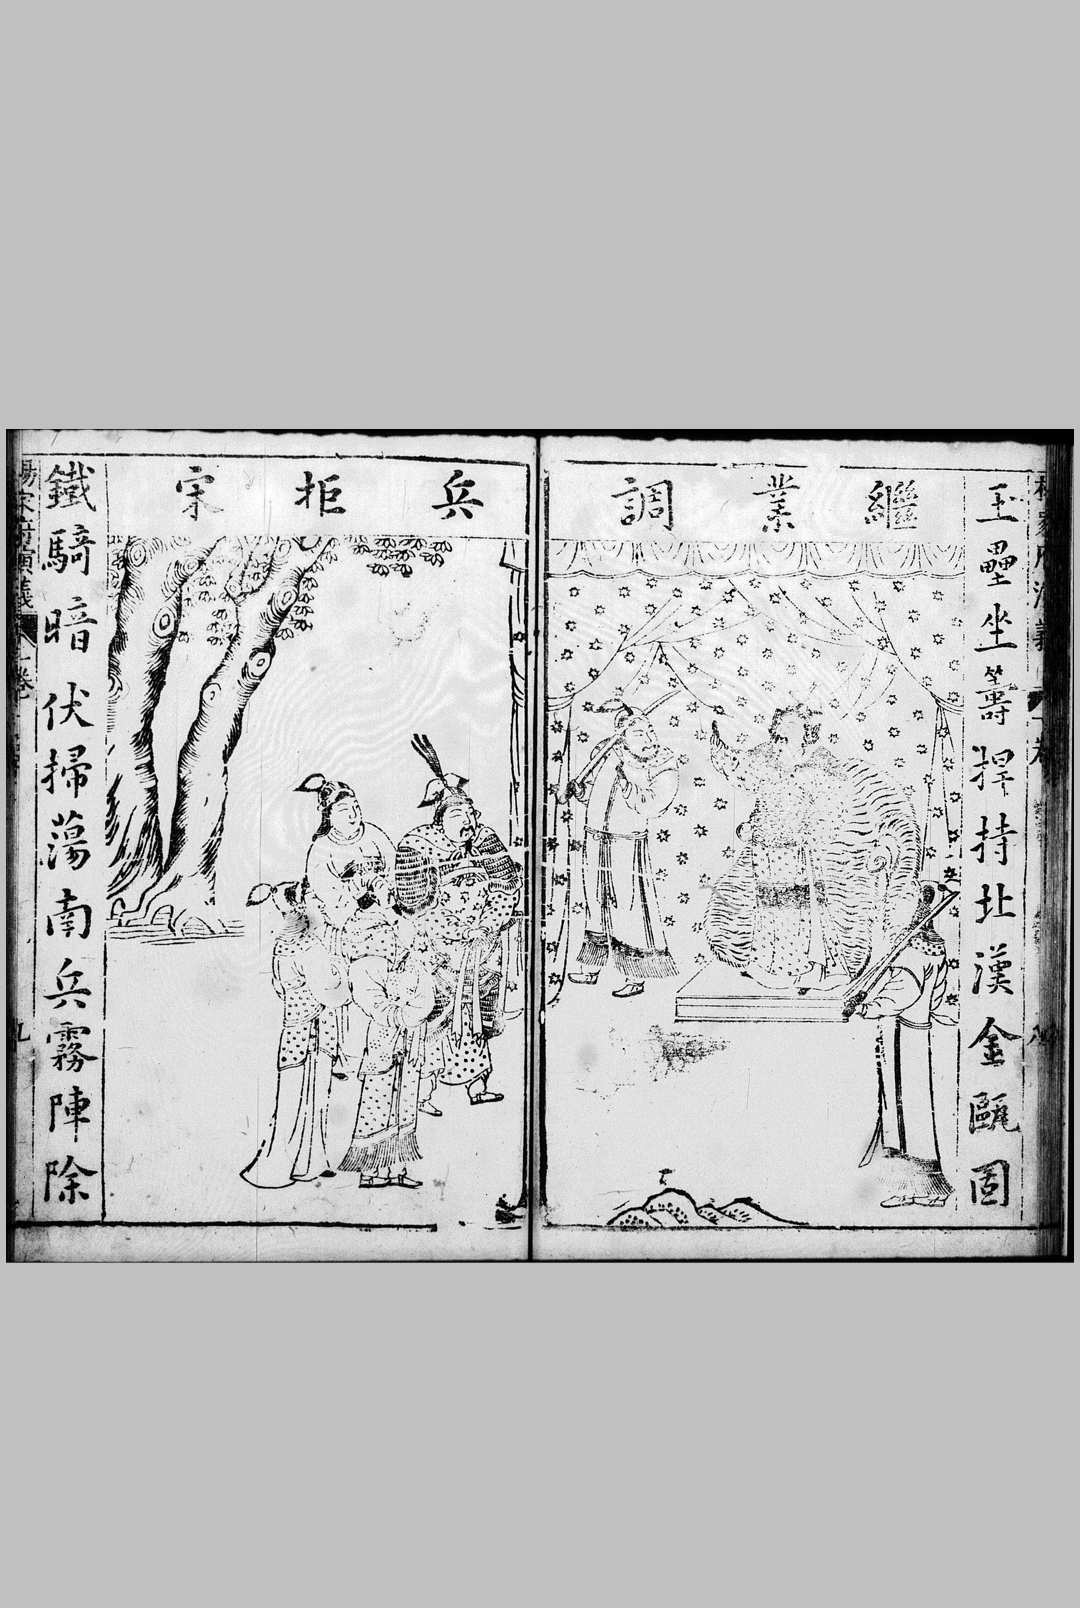 繼業調兵拒宋
玉壘坐籌捍持北漢金甌固
鐵騎暗伏掃蕩南兵霧陣除
楊家府演義 卷 九